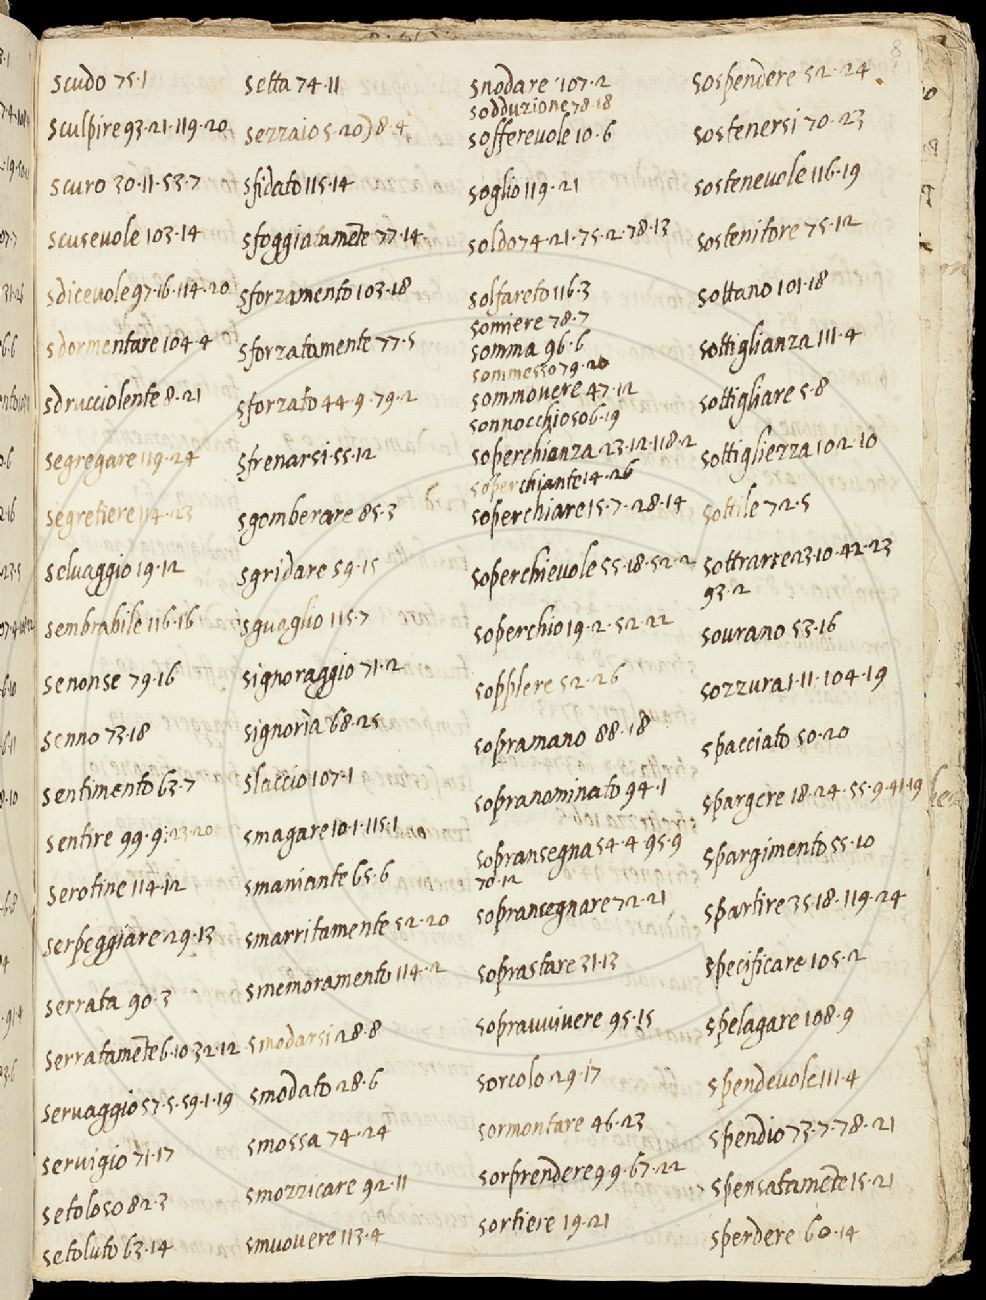 8
scudo 75·1
sculpire 93·21·119·20
scuro 30·11·53·7
scusevole 103·14
sdicevole 97·16·114·20
sdormentare 104·4
sdrucciolente 8·21
segregare 119·24
segretiere 114·23
selvaggio 19·12
sembrabile 116·16
senonse 79·16
senno 73·18
sentimento 63·7
sentire 99·9·23·20
serotine 114·12
serpeggiare 29·13
serrata 90·3
serratamẽte 6·10 32·12
servaggio 57·5·59·1·19
servigio 71·17
setoloso 82·3
setoluto 63·14
setta 74·11
sezzaio 5·20) 8·4
sfidato 115·14
sfoggiatamẽte 77·14
sforzamento 103·18
sforzatamente 77·5
sforzato 44·9·79·2
sfrenarsi 55·12
sgomberare 85·3
sgridare 59·15
sguaglio 115·7
signoraggio 71·2
signoria 68·25
slaccio 107·1
smagare 10·1·115·1
smaniante 65·6
smarritamente 52·20
smemoramento 114·2
smodarsi 28·8
smodato 28·6
smossa 74·24
smozzicare 92·11
smuovere 113·4
snodare 107·2
sodduzione 78·18
sofferevole 10·6
soglio 119·21
soldo 74·21·75·2·78·13
solfareto 116·3
somiere 78·7
somma 96·6
sommesso 79·20
sommovere 47·12
sonnocchioso 6·19
soperchianza 23·12·118·2
soperchiante 14·26
soperchiare 15·7·28·14
soperchievole 55·18·52·2
soperchio 19·2·52·22
sopplere 52·26
sopramano 88·18
sopranominato 94·1
sopransegna 54·4·95·9
70·12
sopransegnare 72·21
soprastare 31·13
sopravvivere 95·15
sorcolo 29·17
sormontare 46·23
sorprendere 99·67·22
sortiere 19·21
sospendere 52·24
sostenersi 70·23
sostenevole 116·19
sostenitore 75·12
sottano 101·18
sottiglianza 111·4
sottigliare 5·8
sottigliezza 102·10
sottile 72·5
sottrarre 23·10·42·23
93·2
sovrano 53·16
sozzura 1·11·104·19
spacciato 50·20
spargere 18·24·55·9·41·19
spargimento 55·10
spartire 35·18·119·24
specificare 105·2
spelagare 108·9
spendevole 111·4
spendio 73·7·78·21
spensatamẽte 15·21
sperdere 60·14